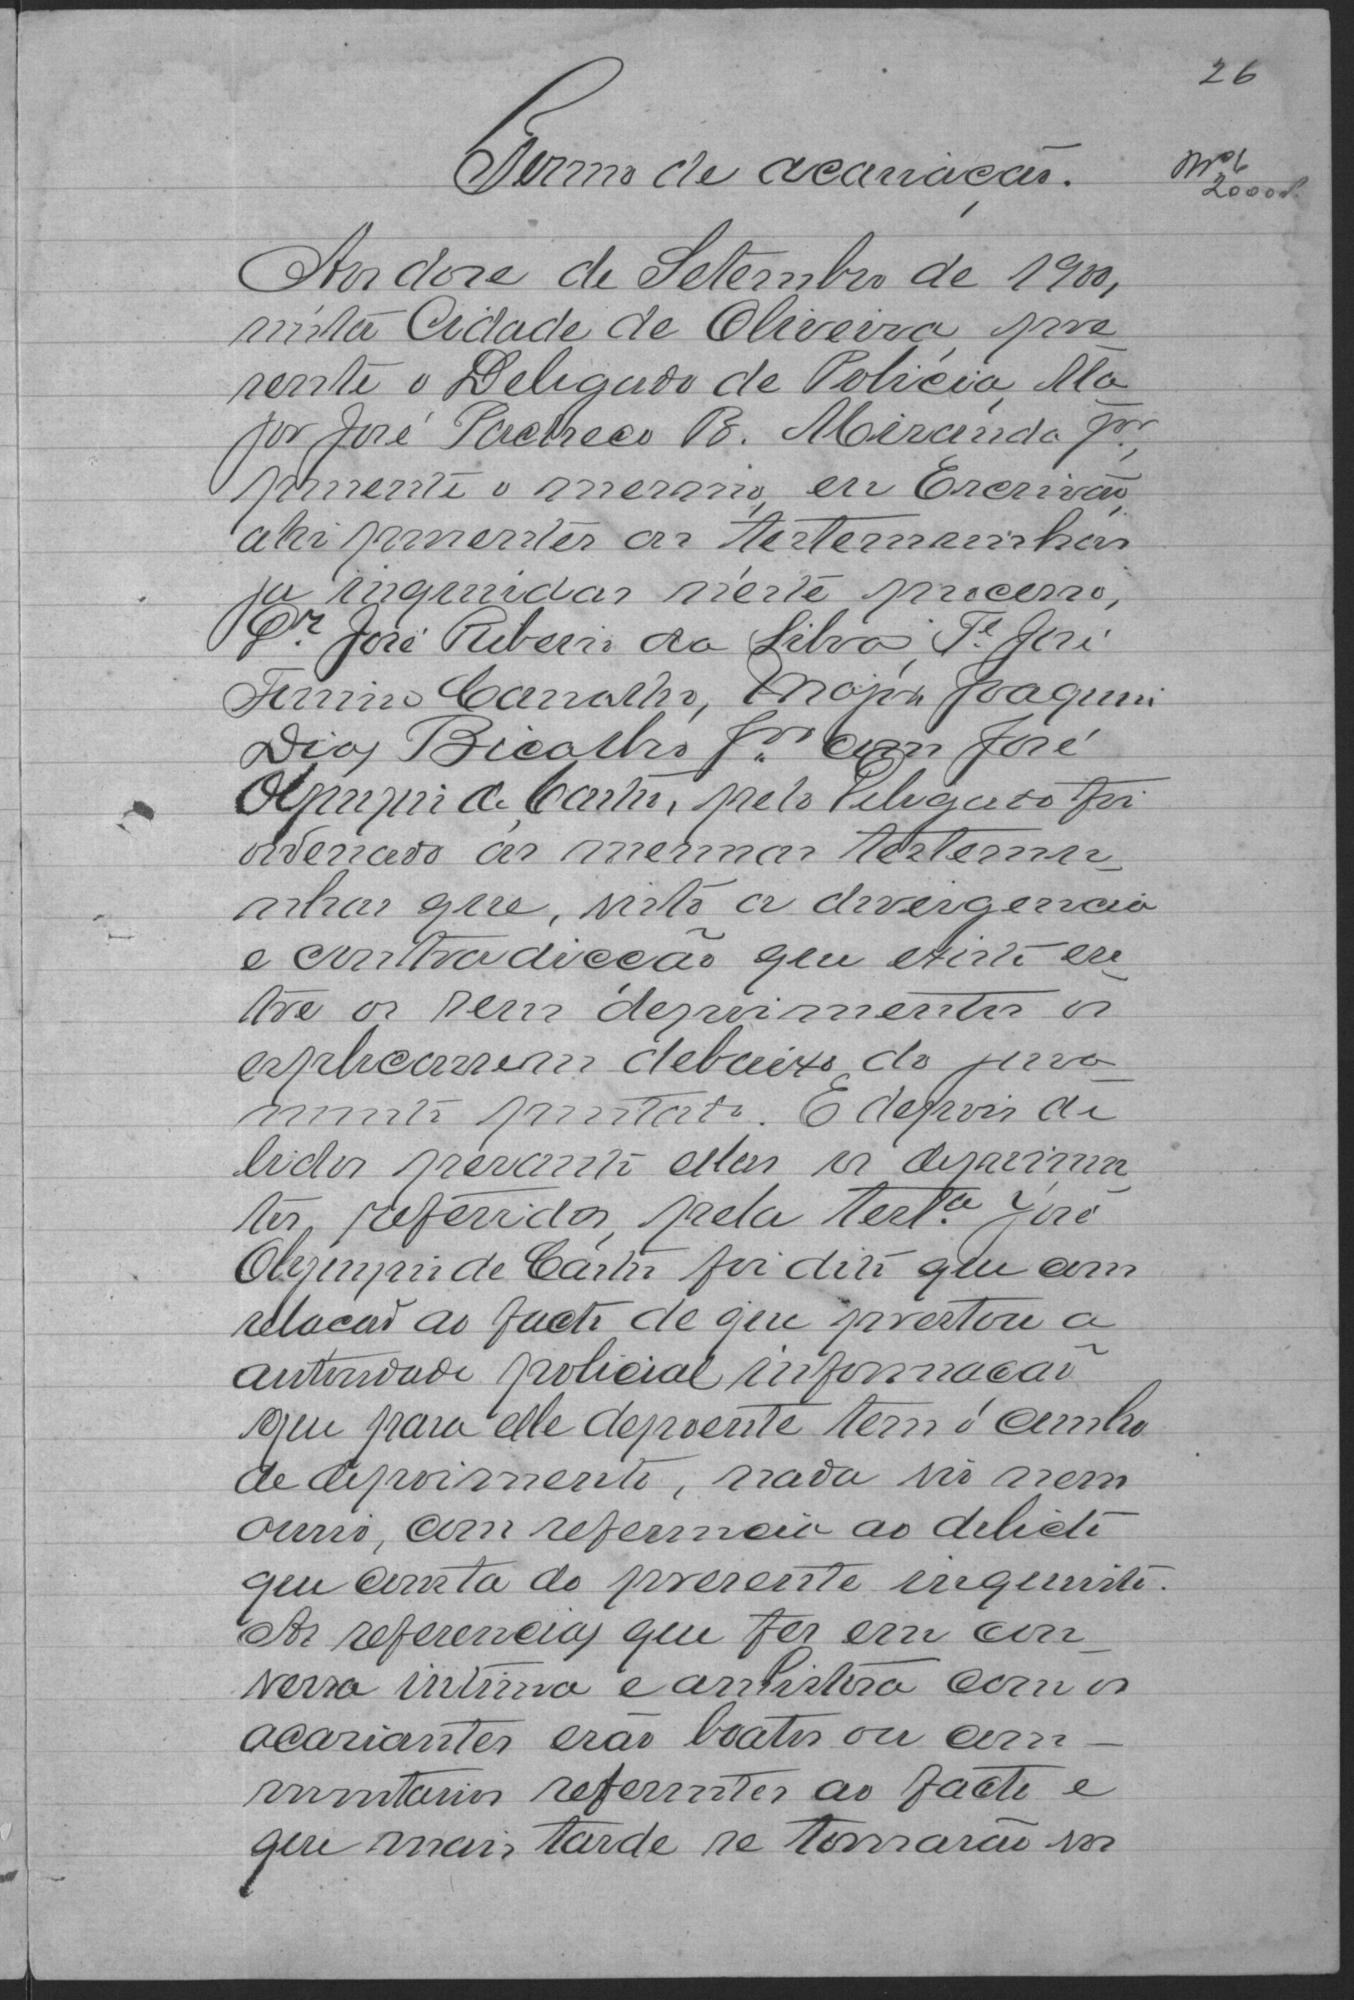 26
Termo de acariação.
2000
Aos doze de Setembro de 1900,
nésta Cidade de Oliveira, pre
zente o Delegado de Policia, Ma
jor José Pacheco B. Miranda Jor.,
prezente o mesmo, eu Escrivão,
ahi prezentes as testemunhas
ja inqueridas n'este processo,
Dr. José Ribeiro da Silva, Te. José
Firmino Carvalho, Major Joaquim
Dias Bicalho Jor. com José
Olympio de Castro, pelo Delegado foi
ordenado ás mesmas testemu
nhas que, visto a divergencia
e contradicção que existe en
tre os seus depoimentos os
explicassem debaixo do jura
mento prestado. E depois de
lidos perante ellas os depoimen
tos referidos, pela testa. José
Olympio de Castro foi dito que com
relacaõ ao facto de que prestou a
autoridade policial informacaõ
que para elle depoente tem o cunho
de depoimento, nada vio nem
ouvio, com referencia ao delicto
que consta do prezente inquerito.
As referencias que fes em con
versa intima e amistosa com os
acariantes erão boatos ou com-
mentarios referentes ao facto e
que mais tarde se tornarão vos